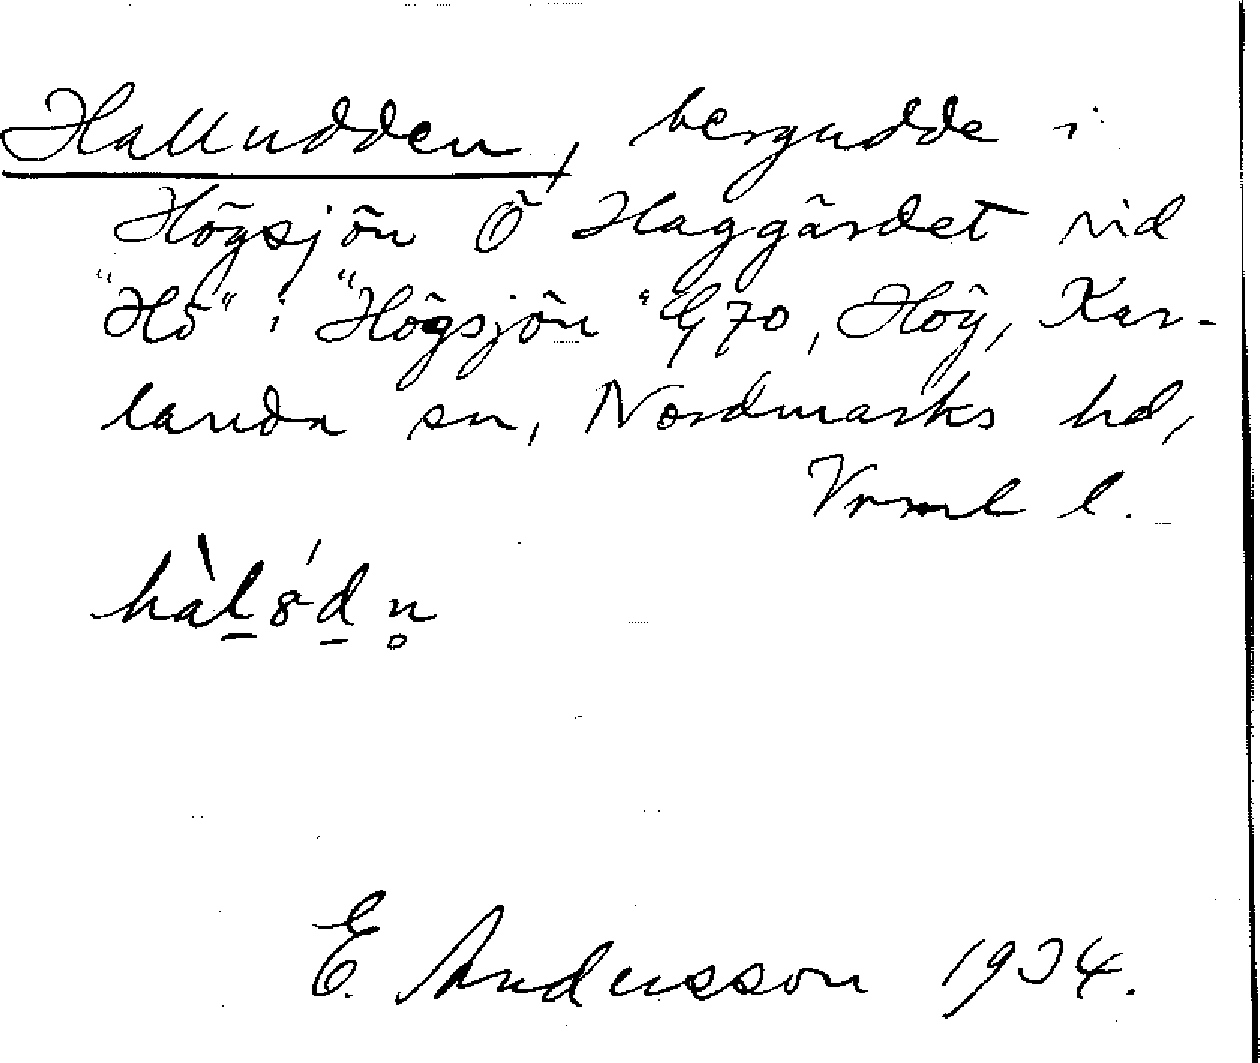 Halludden, bergudde i
Högsjön Ö Haggärdet vid
"Hö" i "Högsjön" G70, Höy, Kar-
landa sn, Nordmarks hd,
Vrml l.
E. Andersson 1934.